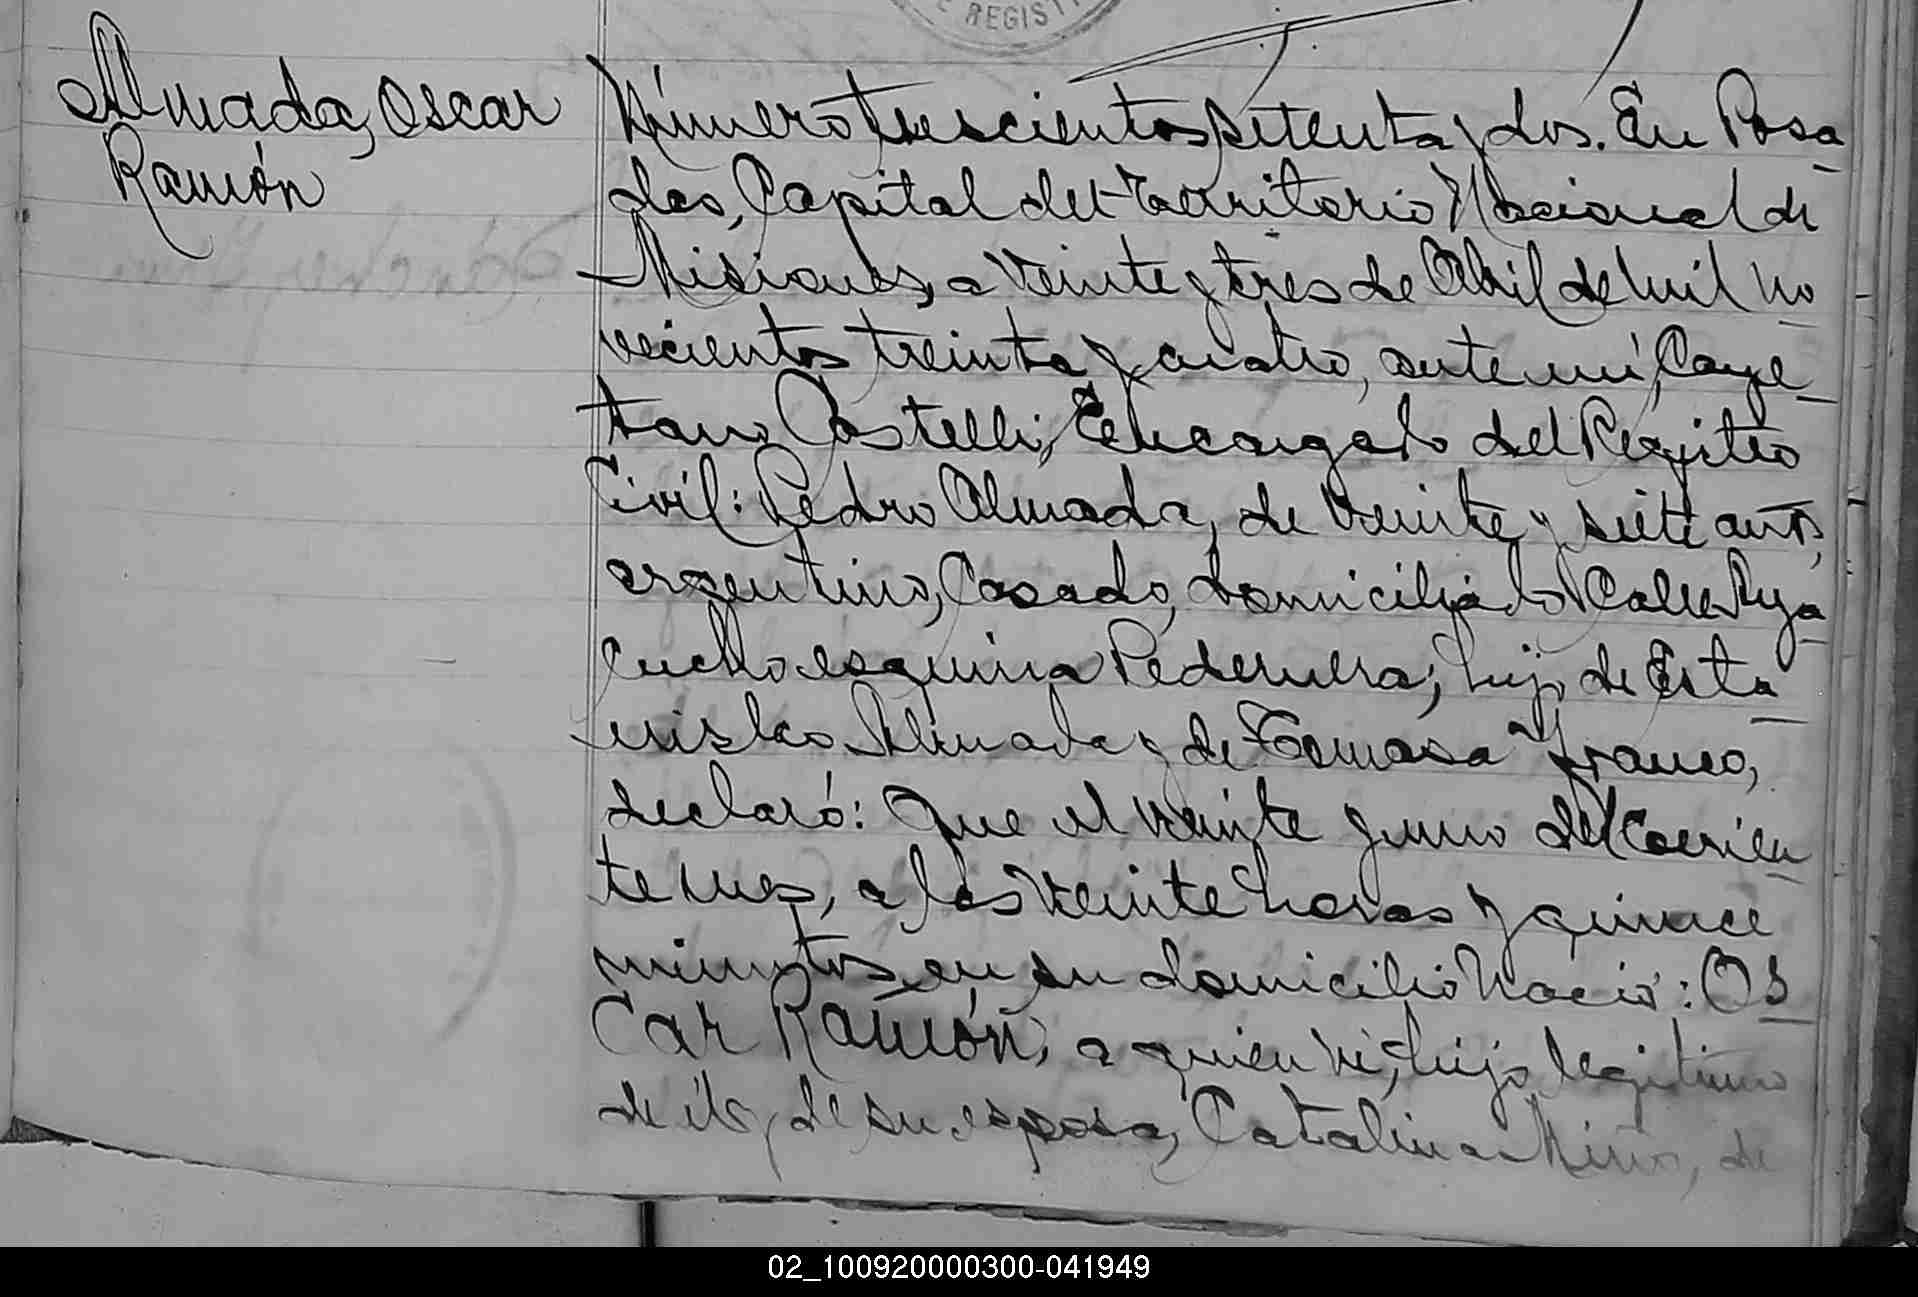 E REGIST
Almada, Oscar
Ramón
Número trescientos setenta y dos. En Posa
das, Capital del Territorio Nacional de
Misiones, a veinte y tres de Abril de mil no
vecientos treinta y cuatro, ante mí, Caye
tano Castelli, Encargado del Registro
Civil: Pedro Almada, de veinte y siete años,
argentino, Casado, domiciliado Calle Aya
cucho esquina Pedernera; hijo de Esta
nislao Almada y de Tomasa Franco,
declaró: Que el veinte y uno del corrien
te mes, a las veinte horas y quince
minutos, en su domicilio nació: OS
CAR RAMÓN, a quien vi, hijo legítimo
de él y de su esposa, Catalina Miño, de
02_100920000300-041949